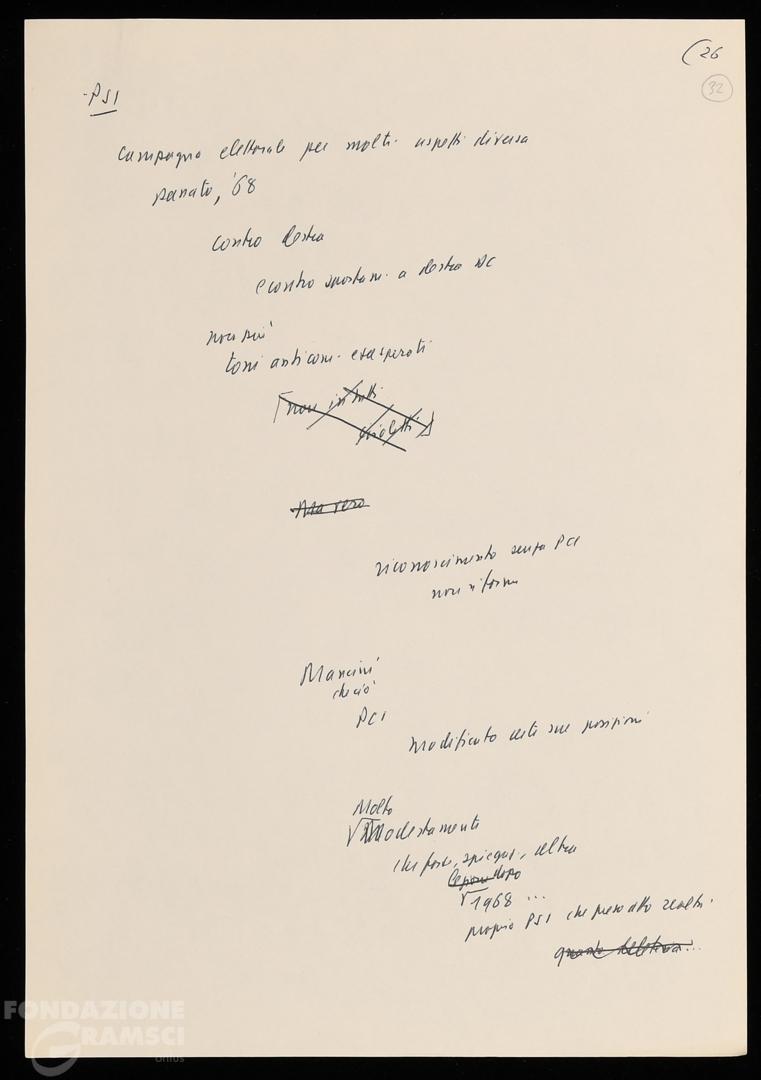 (26
32
- PSI
Campagna elettorale per molti aspetti diversa
passato, '68
contro destra
e contro spostam. a destra DC
non più
toni anticom. esasperati
[non in tutti
ma vero
riconoscimento senza PCI
non riforme
Mancini
che ciò
PCI
modificato certe sue posizioni
Molto
modestamente
che forse, spiegaz., altra
dopo
1968 ...
proprio PSI che preso atto realtà.
quanto
FONDAZIONE
GRAMSCI
onlus